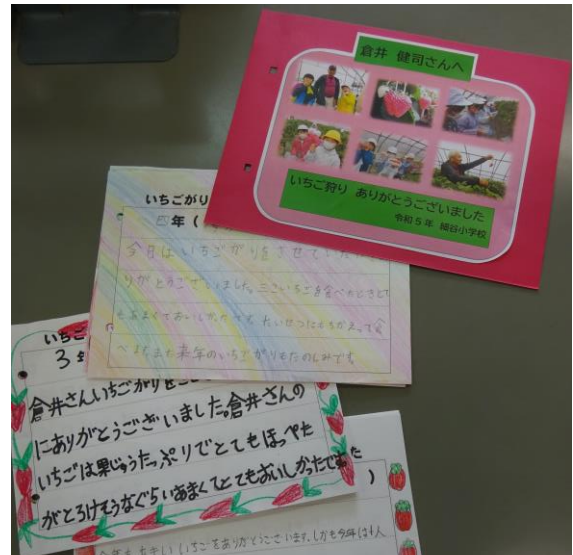 倉井 健司さんへ
いちご狩り ありがとうございました
令和5年 細谷小学校
いちごがり
四年(
今日はいちごがりをさせて
りがとうございました。三こいちごを食べたときとて
もあまくておいしかったです。たいせつにもちかえって食
べます。また来年のいちごがりもたのしみです
いちご
3年
倉井さんいちごがりをさ
にありがとうございました。倉井さんの
いちごは果じゅうたっぷりでとてもほっぺた
がとろけそうなぐらいあまくてとてもおいしかったです
)
今年も大きいいちごをありがとうございます。しかも今年は十人